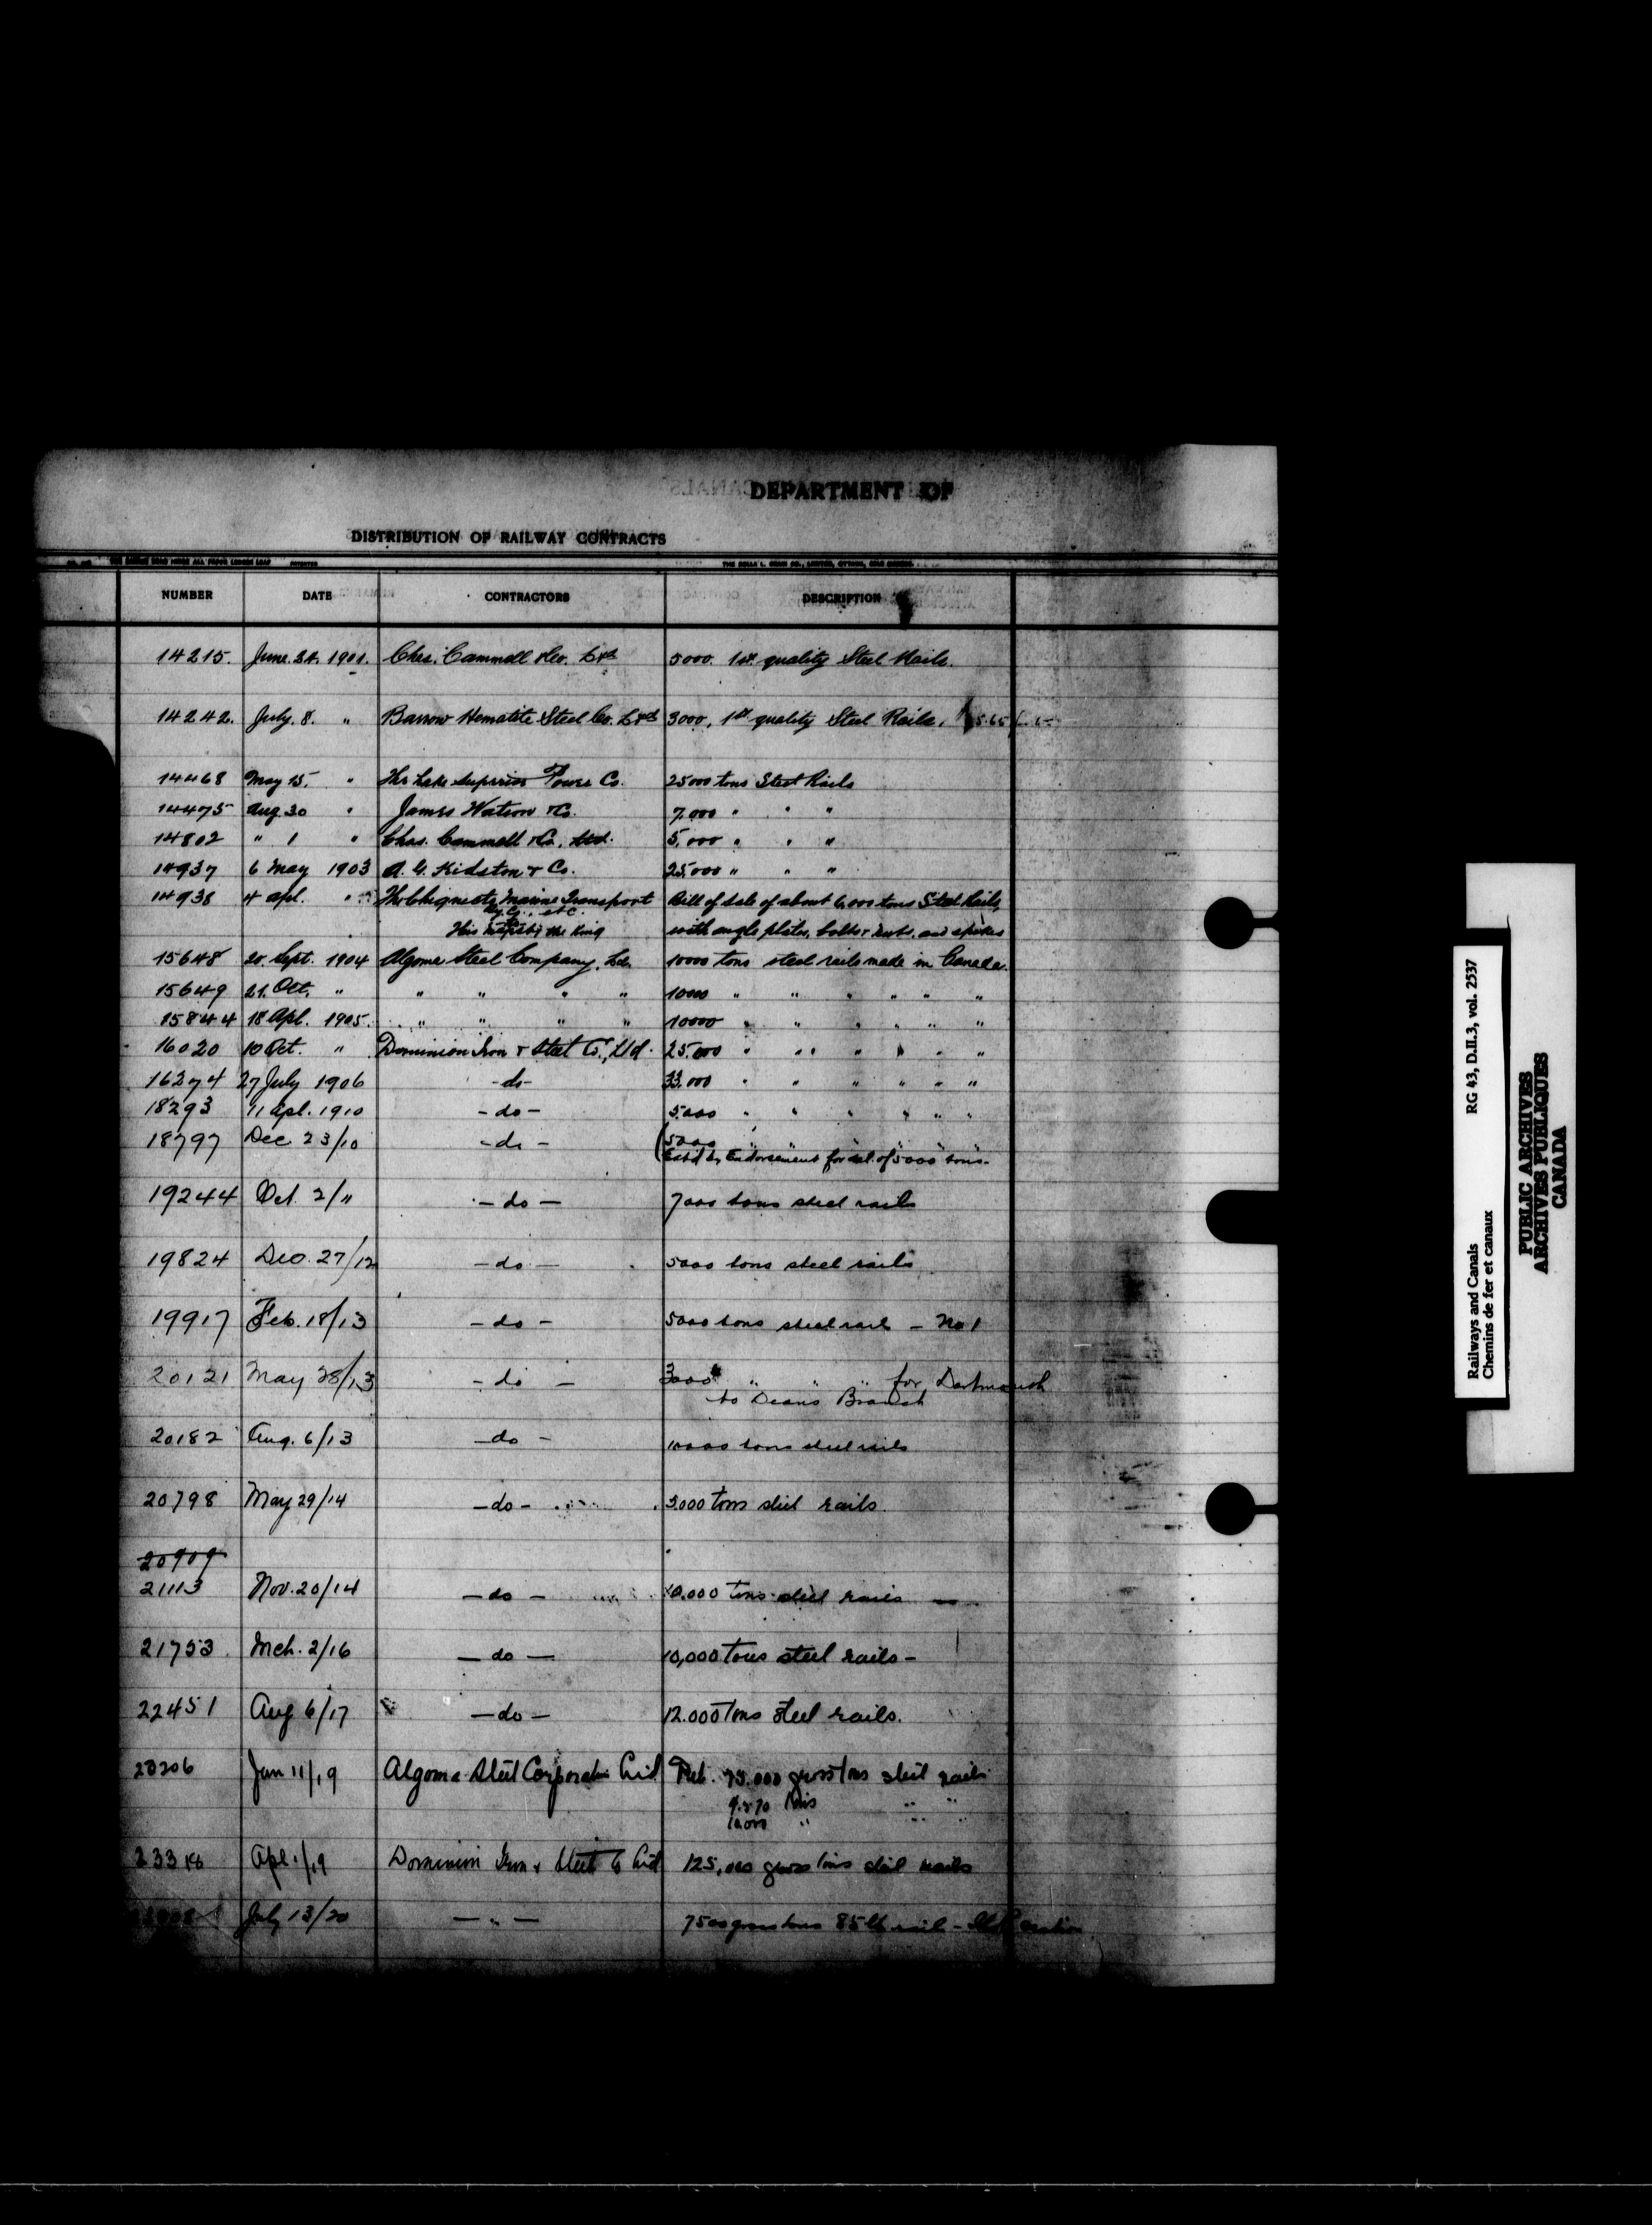 DEPARTMENT OF
DISTRIBUTION OF RAILWAY CONTRACTS
NUMBER DATE CONTRACTORS DESCRIPTION
14215. June. 24. 1901. Chas. Cammell & Co. Ltd 5000. 1st. quality Steel Rails.
14242. July. 8. " Barrow Hematite Steel Co. Ltd 3000, 1st quality Steel Rails.
14468 May 15. " The Lake Superior Power Co. 25000 tons Steel Rails
14475 Aug. 30 " James Watson & Co. 7,000 " " "
14802 " 1 " Chas. Cammell & Co. Ltd. 5,000 " " "
14937 6 May 1903 A. G. Kidston & Co. 25,000 " " "
14938 4 Apl. " The Chignecto Marine Transport Bill of Sale of about 6,000 tons Steel Rails,
Ry. Co., etc.
to
His Majesty the King with angle plates, bolts & nuts, and spikes
15648 20 Sept. 1904 Algoma Steel Company, Ld. 10000 tons steel rails made in Canada.
15649 21. Oct. " " " " " 10000 " " " " " "
15844 18 Apl. 1905. " " " " 10000 " " " " " "
16020 10 Oct. " Dominion Iron & Steel Co., Ltd. 25.000 " " " " " "
16274 27 July 1906 -do- 33.000 " " " " " "
18293 11 Apl. 1910 -do- 5.000 " " " " " "
18797 Dec 23/10 -do- (5000 " " " " "
Ext'd by Endorsement for del. of 5000 tons.
19244 Oct. 2/11 -do- 7000 tons steel rails
19824 Dec. 27/12 -do- 5000 tons steel rails
19917 Feb. 18/13 -do- 5000 tons steel rail - No 1
20121 May 28/13 -do- 3000 " " " for Dartmouth
to Deans Branch
20182 Aug. 6/13 -do- 10000 tons steel rails
20798 May 29/14 -do- 5.000 tons steel rails.
20909
21113 Nov. 20/14 -do- 10.000 tons steel rails
21753 Mch. 2/16 -do- 10,000 tons steel rails -
22451 Aug 6/17 -do- 12.000 tons steel rails.
23206 Jan 11/19 Algoma Steel Corporation Ltd 75.000 gross tons steel rails
tons " "
10,000 " " "
23318 Apl. 1/19 Dominion Iron & Steel Co Ltd 125,000 gross tons steel rails
July 13/20 - " - 7500 gross tons 85 lb rail -
Railways and Canals RG 43, D.II.3, vol. 2537
Chemins de fer et canaux
PUBLIC ARCHIVES
ARCHIVES PUBLIQUES
CANADA